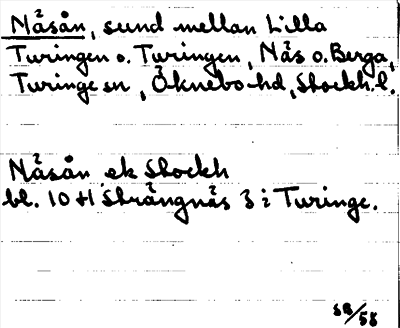 Näsån, sund mellan Lilla
Turingen o. Turingen, Näs o. Berga,
Turinge sn, Öknebo hd, Stockh. l.
Näsån, ek Stockh
bl. 10 +1 Strängnäs 3 i Turinge.
SB/58